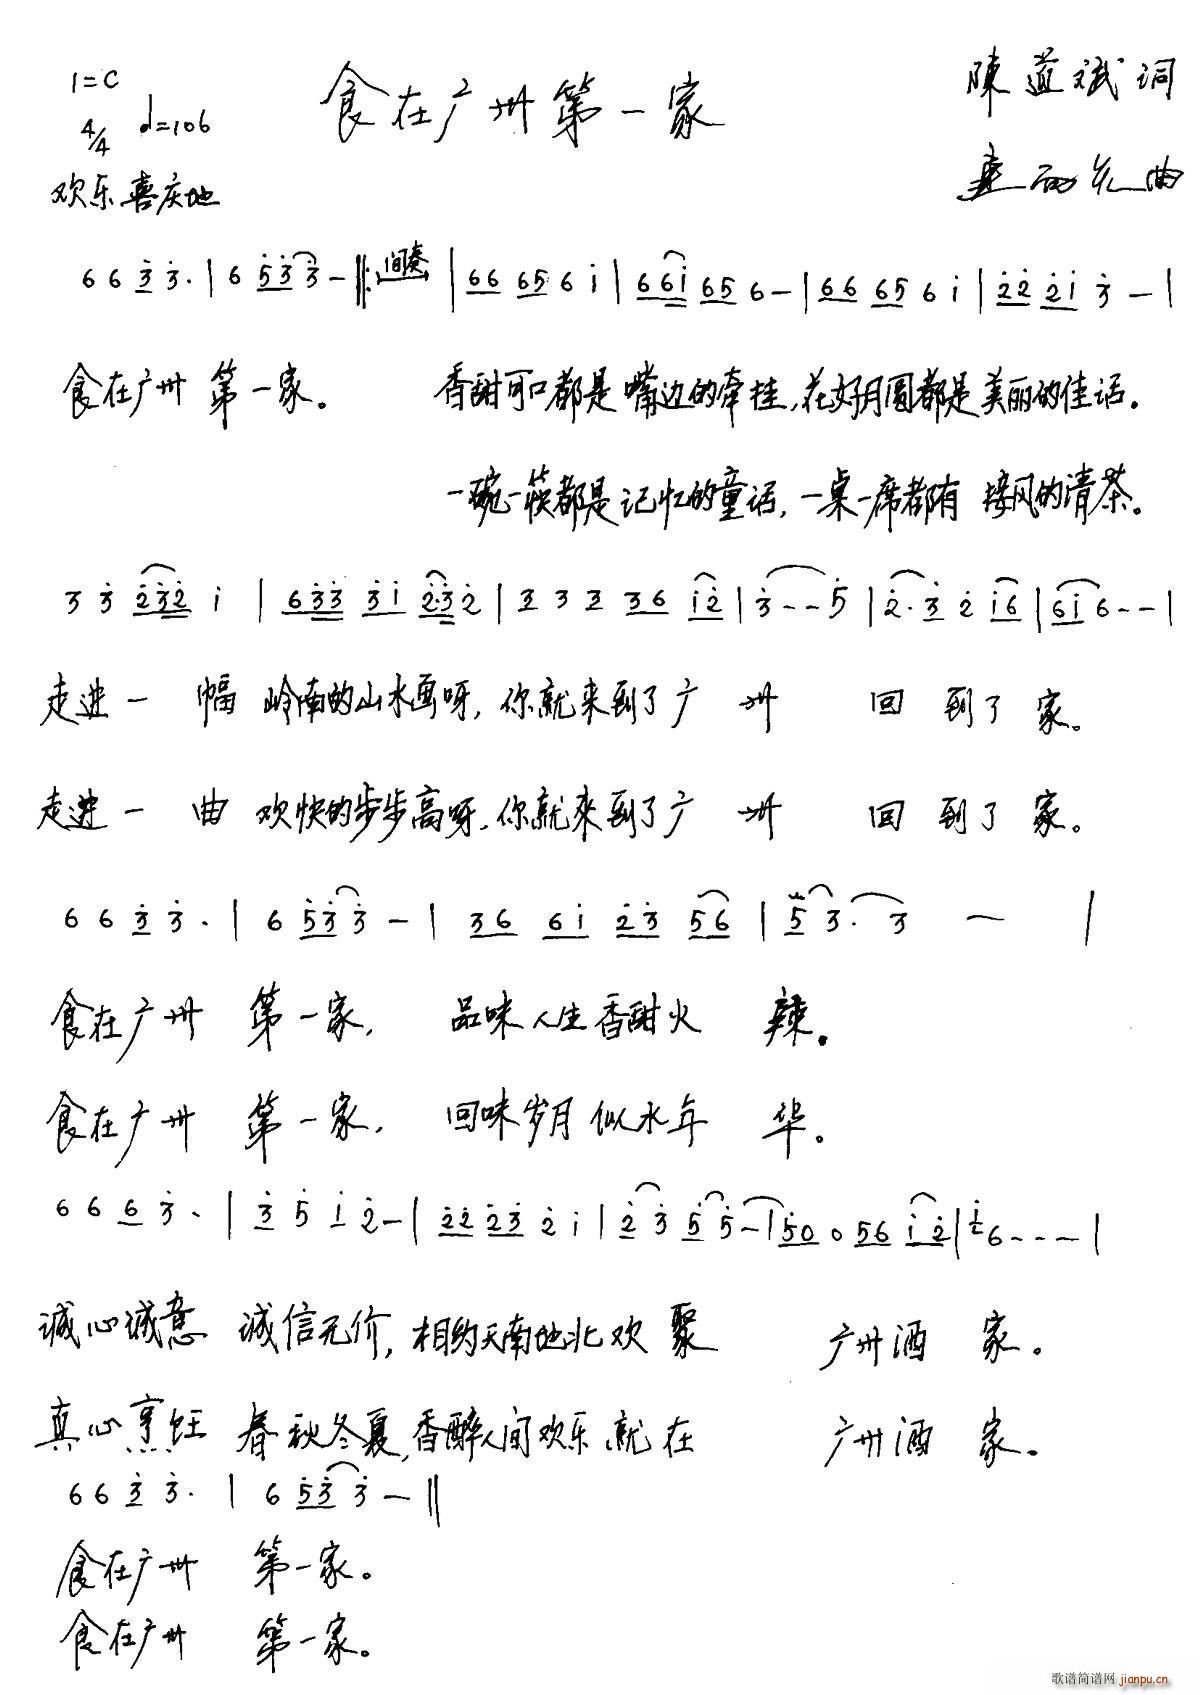 1=C
食在广州第一家
陳道斌词
4/4 ♩=106
曲
欢乐喜庆地
6 6 3̇ 3̇· | 6 5̇3̇ 3̇ — ‖: 间奏 | 66 65 6 i | 66i 65 6 — | 66 65 6 i | 2̇2̇ 2̇i 3̇ — |
食在广州 第一家。 香甜可口都是嘴边的牵挂,花好月圆都是美丽的佳话。
一碗一筷都是记忆的童话,一桌一席都有 接风的清茶。
3 3̇ 2̇3̇2̇ i | 63̇3̇ 3̇i 2̇·3̇2̇ | 3 3 3 36 i2̇ | 3̇ - - 5̇ | 2̇· 3̇ 2̇ i6 | 6i6 - - |
走进一 幅 岭南的山水画呀,你就来到了广 州 回 到了 家。
走进一 曲 欢快的步步高呀,你就來到了广 州 回 到了 家。
6 6 3̇ 3̇· | 6 5̇3̇ 3̇ — | 36 6i 2̇3̇ 56 | 5 3· 3 — |
食在广州 第一家, 品味人生香甜火 辣。
食在广州 第一家, 回味岁月似水年 华。
6 6 6 3̇· | 3̇ 5̇ i 2̇ — | 2̇2̇ 2̇3̇ 2̇ i | 2̇ 3̇ 5̇ 5̇ — | 5̇0 0 56 i2̇ | 6 - - - |
诚心诚意 诚信无价,相约天南地北欢 聚 广州酒 家。
真心烹饪 春秋冬夏,香醉人间欢乐就在 广州酒 家。
6 6 3̇ 3̇· | 6 5̇3̇ 3̇ — ‖
食在广州 第一家。
食在广州 第一家。
歌谱简谱网 jianpu.cn